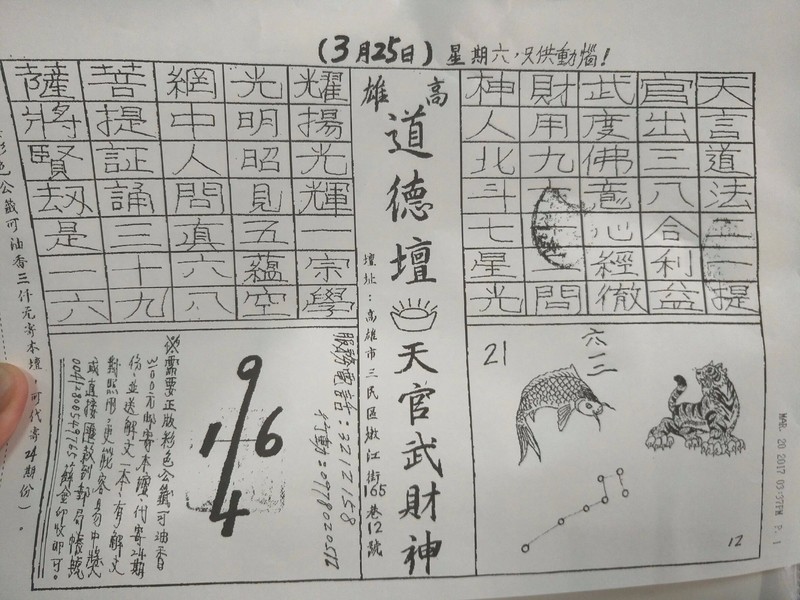 (3月25日) 星期六,只供動惱!
天言道法二一提
官出三八合利益
武度佛意心經徹
財用九問
神人北斗七星光
21
六二三
12
高雄
道德壇 天官武財神
壇址：高雄市三民區嫩江街165巷12號
耀揚光輝一宗學
光明昭見五蘊空
網中人問真六八
菩提証誦三十九
薩將賢劫是一六
服務電話：3212158
行動：0978020512
9
1 6
4
※需要正版彩色公籤可油香
3100元郵寄本壇,代寄24期
份,並送解文一本,有解文
對照用,更能容易中獎
或直接匯款到郵局帳號
蘇金印收即可。
彩色公籤可油香三仟元寄本壇，可代寄24期份)。
MAR. 20 2017 03:37PM P. 1